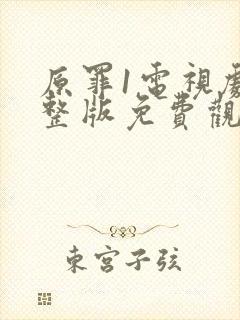 原罪1電視劇
整版免費觀
東宮子弦